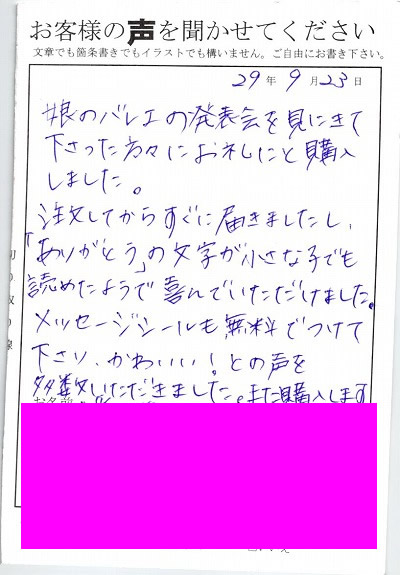 お客様の声を聞かせてください
文章でも箇条書きでもイラストでも構いません。ご自由にお書き下さい。
29年 9月23日
娘のバレエの発表会を見にきて
下さった方々にお礼にと購入
しました。
注文してからすぐに届きましたし、
「ありがとう」の文字が小さな子でも
読めたようで喜んでいただけました。
メッセージシールも無料でつけて
下さり、かわいい!との声を
多数いただきました。また購入します
お名前